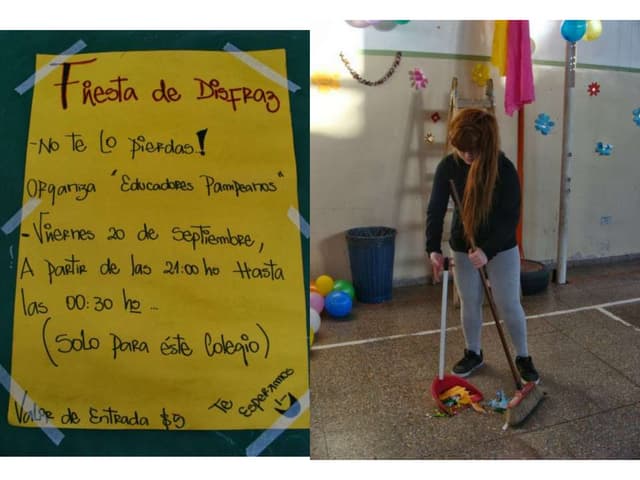 Fiesta de Disfraz
- No te lo pierdas!
Organiza "Educadores Pampeanos"
- Viernes 20 de Septiembre,
A partir de las 21:00 hs Hasta
las 00:30 hs ...
(Solo para éste Colegio)
Te esperamos
Valor de Entrada $5